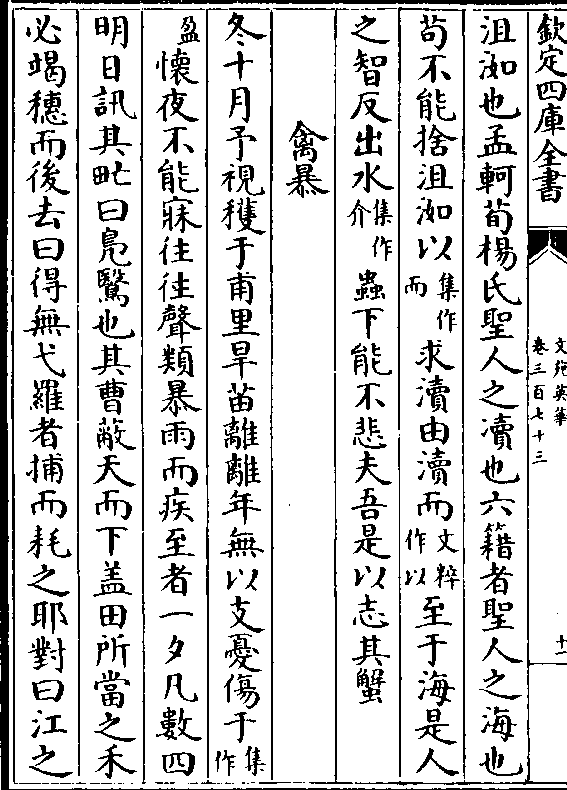 欽定四庫全書
文苑英華
卷三百七十三
十二
沮洳也孟軻荀楊氏聖人之瀆也六籍者聖人之海也
苟不能捨沮洳以集作而求瀆由瀆而文粹作以至于海是人
之智反出水集作介蟲下能不悲夫吾是以志其蟹
禽暴
冬十月予視穫于甫里旱苗離離年無以支憂傷于集作
盈懷夜不能寐往往聲類暴雨而疾至者一夕凡數四
明日訊其甿曰鳧鷖也其曹蔽天而下盖田所當之禾
必竭穗而後去曰得無弋羅者捕而耗之耶對曰江之